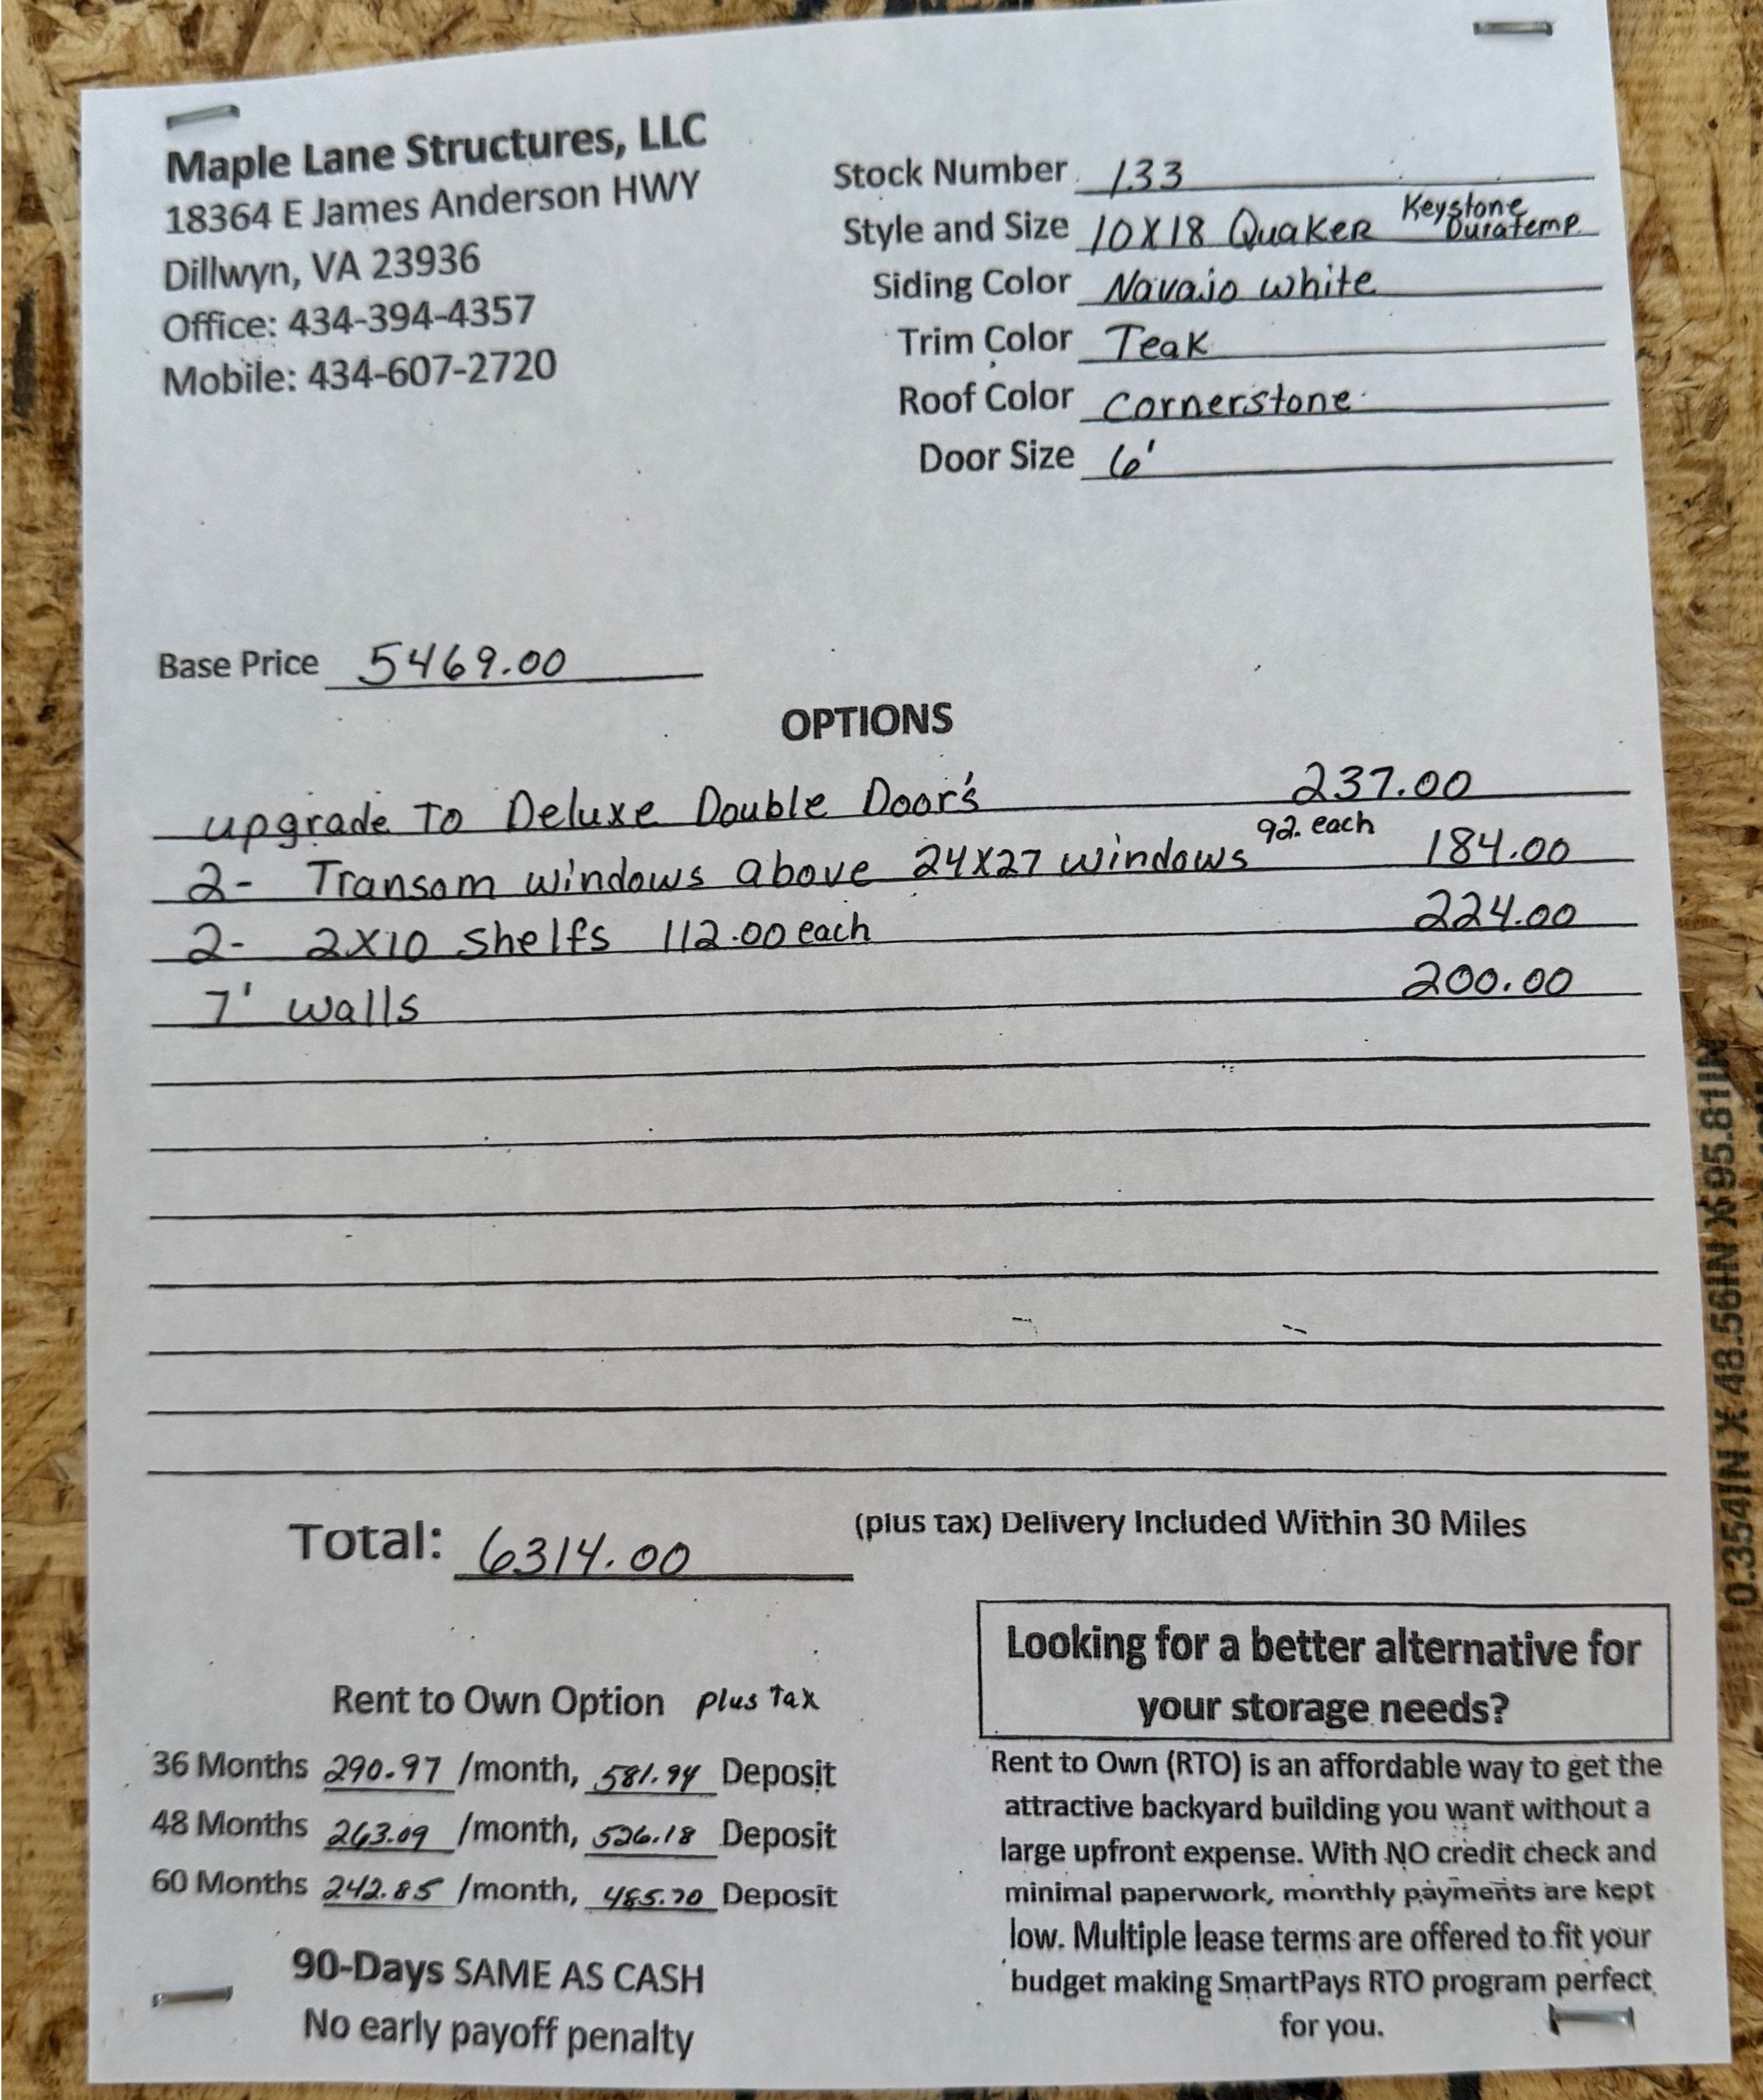 Maple Lane Structures, LLC
18364 E James Anderson HWY
Dillwyn, VA 23936
Office: 434-394-4357
Mobile: 434-607-2720
Stock Number 133
Style and Size 10X18 Quaker Keystone Duratemp
Siding Color Navajo white
Trim Color Teak
Roof Color Cornerstone
Door Size 6'
Base Price 5469.00
OPTIONS
upgrade To Deluxe Double Door's 237.00
2- Transom windows above 24X27 windows 92. each 184.00
2- 2X10 shelfs 112.00 each 224.00
7' walls 200.00
Total: 6314.00 (plus tax) Delivery Included Within 30 Miles
Rent to Own Option plus Tax
36 Months 290.97 /month, 581.94 Deposit
48 Months 263.09 /month, 526.18 Deposit
60 Months 242.85 /month, 485.70 Deposit
90-Days SAME AS CASH
No early payoff penalty
Looking for a better alternative for
your storage needs?
Rent to Own (RTO) is an affordable way to get the
attractive backyard building you want without a
large upfront expense. With NO credit check and
minimal paperwork, monthly payments are kept
low. Multiple lease terms are offered to fit your
budget making SmartPays RTO program perfect
for you.
0.354IN X 48.56IN X 95.81IN